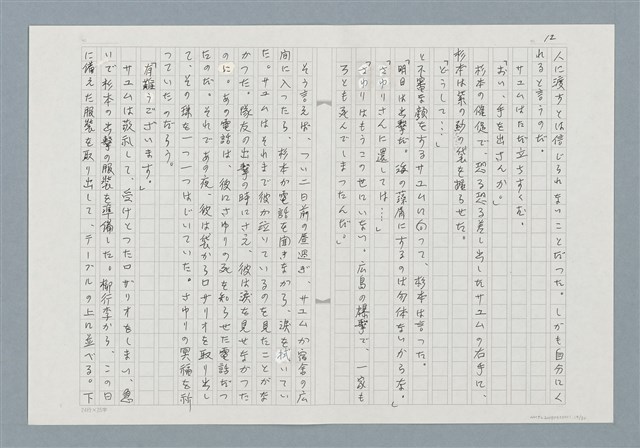 12
人に渡すとは信じられないことだった。しかも自分にく
れると言うのだ。
サユムはただ立ちすくむ。
「おい、手を出さんか。」
杉本の催促で、恐る恐る差し出したサユムの右手に、
杉本は紫の紗の袋を握らせた。
「どうして…」
と不審な顔をするサユムに向って、杉本は言った。
「明日は出撃だ。海の藻屑にするのは勿体ないからな。」
「さゆりさんに還しては…」
「さゆりはもうこの世にいない。広島の爆撃で、一家も
ろとも死んでしまったんだ。」
そう言えば、つい二日前の昼過ぎ、サユムが宿舎の広
間に入ったら、杉本が電話を聞きながら、涙を拭いてい
た。サユムはそれまで彼が泣いているのを見たことがな
かった。隊友の出撃の時にさえ、彼は涙を見せなかった
のに。あの電話は、彼にさゆりの死を知らせた電話だっ
たのだ。それであの夜、彼は袋からロザリオを取り出し
て、その珠を一つ一つはじいていた。さゆりの冥福を祈
っていたのだろう。
「有難うございます。」
サユムは敬礼して、受けとったロザリオをしまい、急
いで杉本の出撃の服装を準備した。柳行李から、この日
に備えた服装を取り出して、テーブルの上に並べる。下